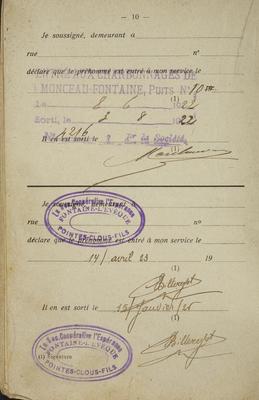 — 10 —
Je soussigné, demeurant à
rue nº
ENTRE AUX CHARBONNAGES DE
déclare que le prénommé est entré à mon service le
MONCEAU-FONTAINE, PUITS Nº 10
Le 8 6 1922
(1)
Sorti, le 3 8 1922
Nº 4216 Pr la Société,
Il en est sorti le
(1)
Je soussigné, demeurant à
La Son Coopérative l'Espérance
FONTAINE-L'EVÊQUE
POINTES-CLOUS-FILS
rue nº
déclare que le prénommé est entré à mon service le
14/ avril 23 19
(1)
Il en est sorti le 15/ Janvier/ 25
(1)
La Son Coopérative l'Espérance
FONTAINE-L'EVÊQUE
POINTES-CLOUS-FILS
(1) Signature